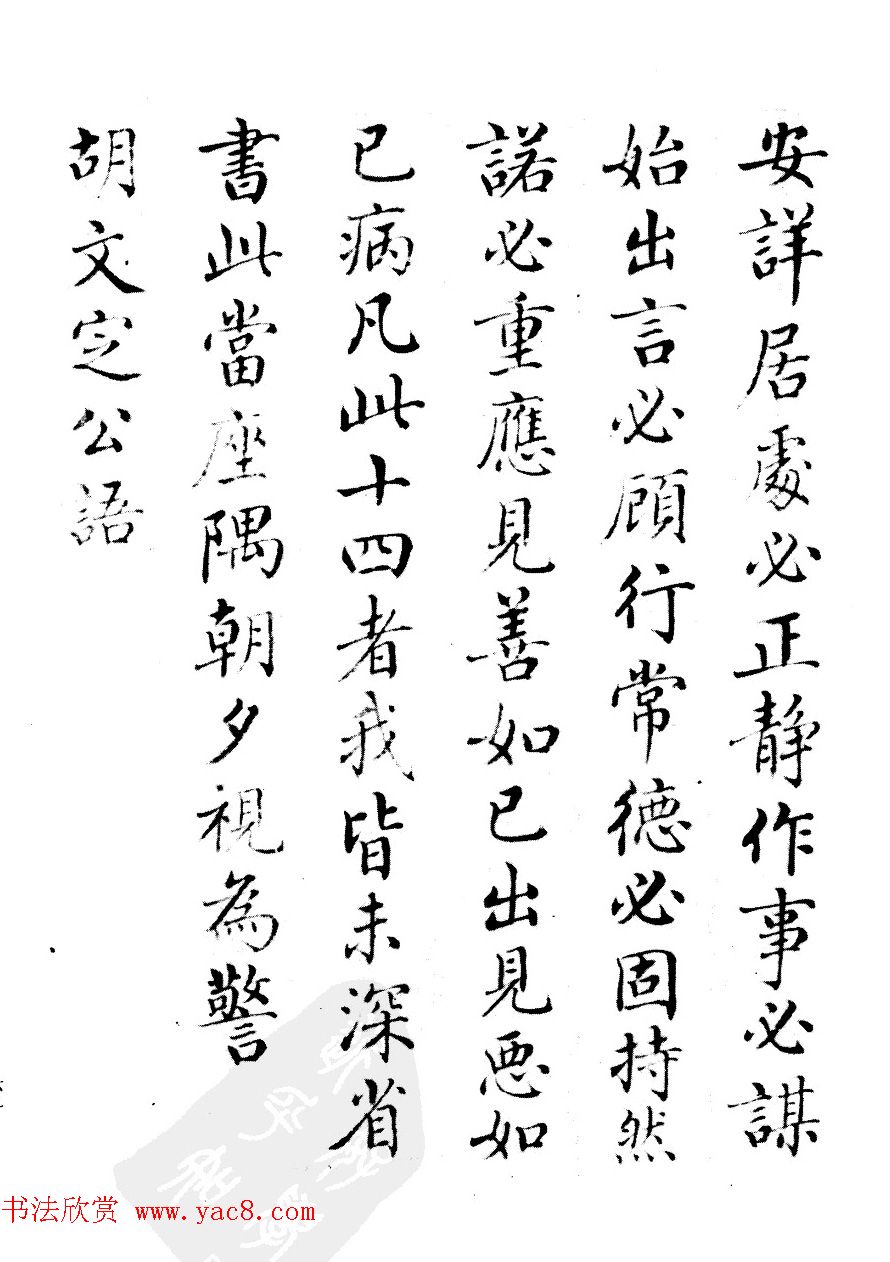 安詳居處必正静作事必謀
始出言必顧行常德必固持然
諾必重應見善如己出見惡如
己病凡此十四者我皆未深省
書此當座隅朝夕視為警
胡文定公語
书法欣赏 www.yac8.com